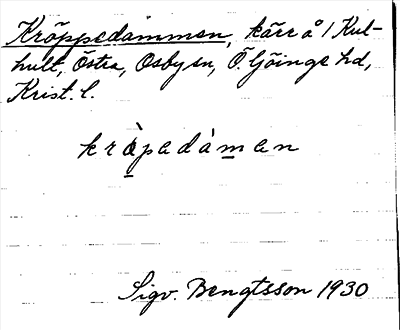 Kröppedammen, kärr å 1 Kul-
hult, Östra, Osby sn, Ö. Göinge hd,
Krist. l.
krö̀pedàmen
Sigv. Bengtsson 1930